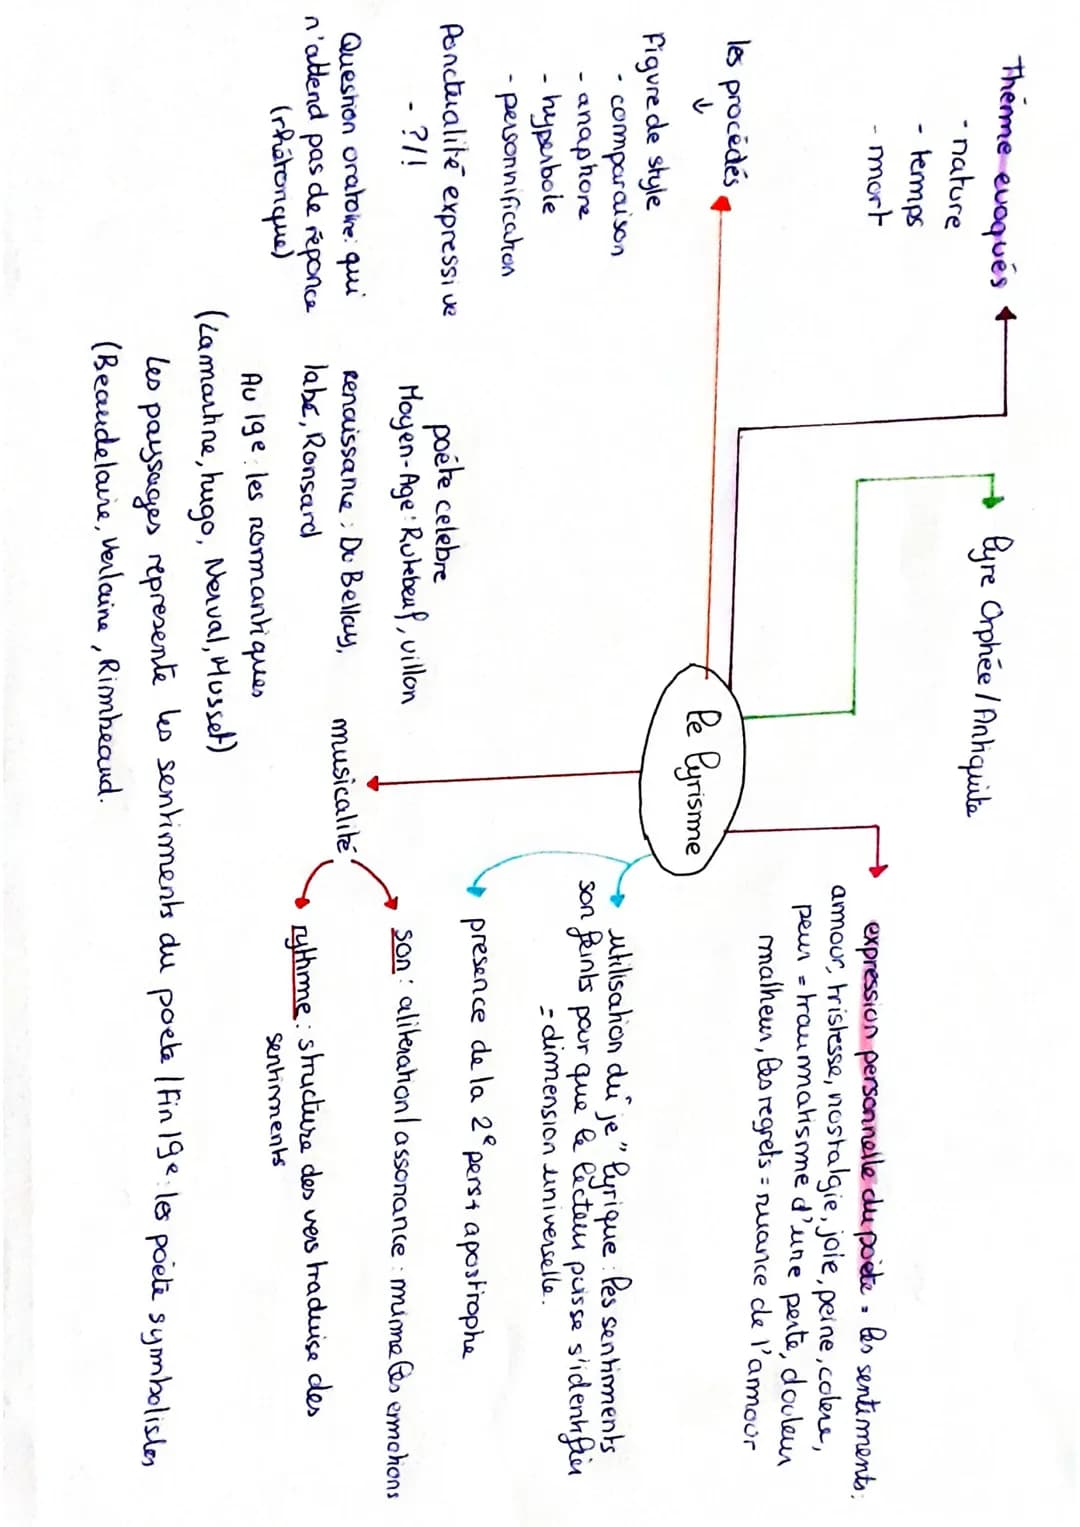 Thémme evoqués
- nature
- temps
- mort
lyre Orphée / Antiquite
expression personnelle du poète = les sentiments:
amour, tristesse, nostalgie, joie, peine, colere,
peur = traummatisme d'une perte, douleur
malheur, les regrets = nuance de l'amour
les procédés
↓
Figure de style
- comparaison
- anaphore
- hyperbole
- personnification
Ponctualité expressive
- ?/!
Question oratoire: qui
n'attend pas de réponce
(rhétorique)
le lyrisme
utilisation du "je" lyrique : les sentiments
son feints pour que le lecteur puisse s'identifier
= dimension universelle.
presence de la 2e pers + apostrophe
poéte celebre
Moyen-Age: Rutebeuf, villon
renaissance : Du Bellay,
labé, Ronsard
Au 19e : les romantiques
(Lamartine, hugo, Nerval, Musset)
musicalité
son : aliteration / assonance : mime les emotions
rythme : structure des vers traduise des
sentiments
les paysages represente les sentiments du poete / Fin 19e : les poète symbolistes
(Beaudelaire, Verlaine, Rimbeaud.